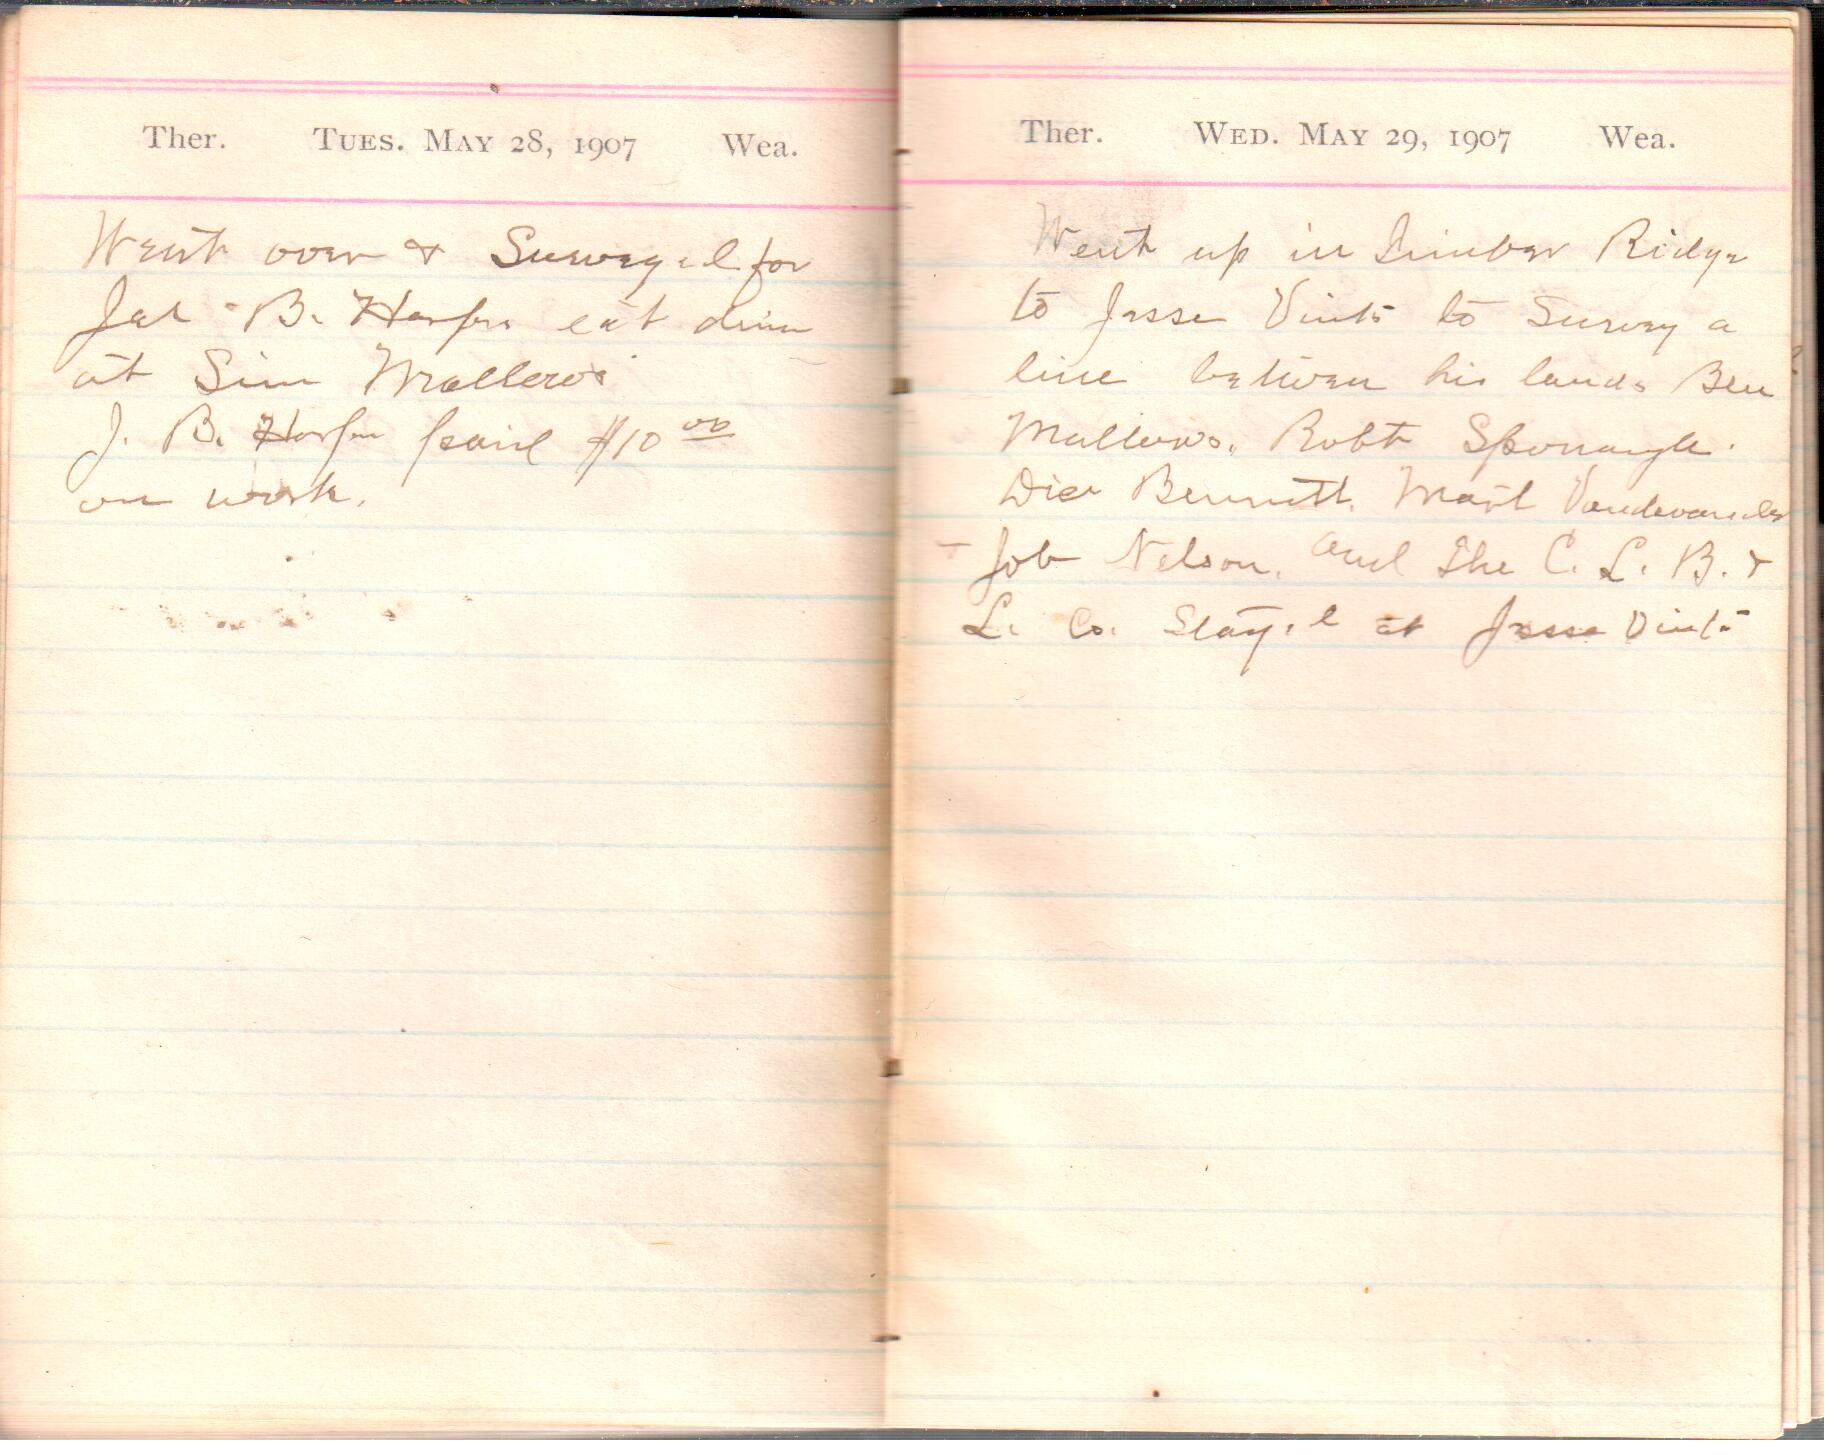 Ther. TUES. MAY 28, 1907 Wea.
Went over & Surveyed for
B. Harper eat
at Sim Mallows
J. B. Harper paid $10 00
on work.
Ther. WED. MAY 29, 1907 Wea.
Went up in Timber Ridge
to Jesse Vints to Survey a
line between his lands Ben
Mallows, Robt Sponaugle.
Dice Bennett, Mart Vandevander
& Job Nelson, and The C. L. B. &
L. Co. Stayed at Jesse Vints